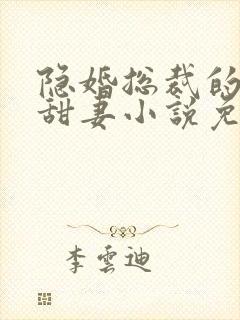 隐婚总裁的
甜妻小说免
李雲迪